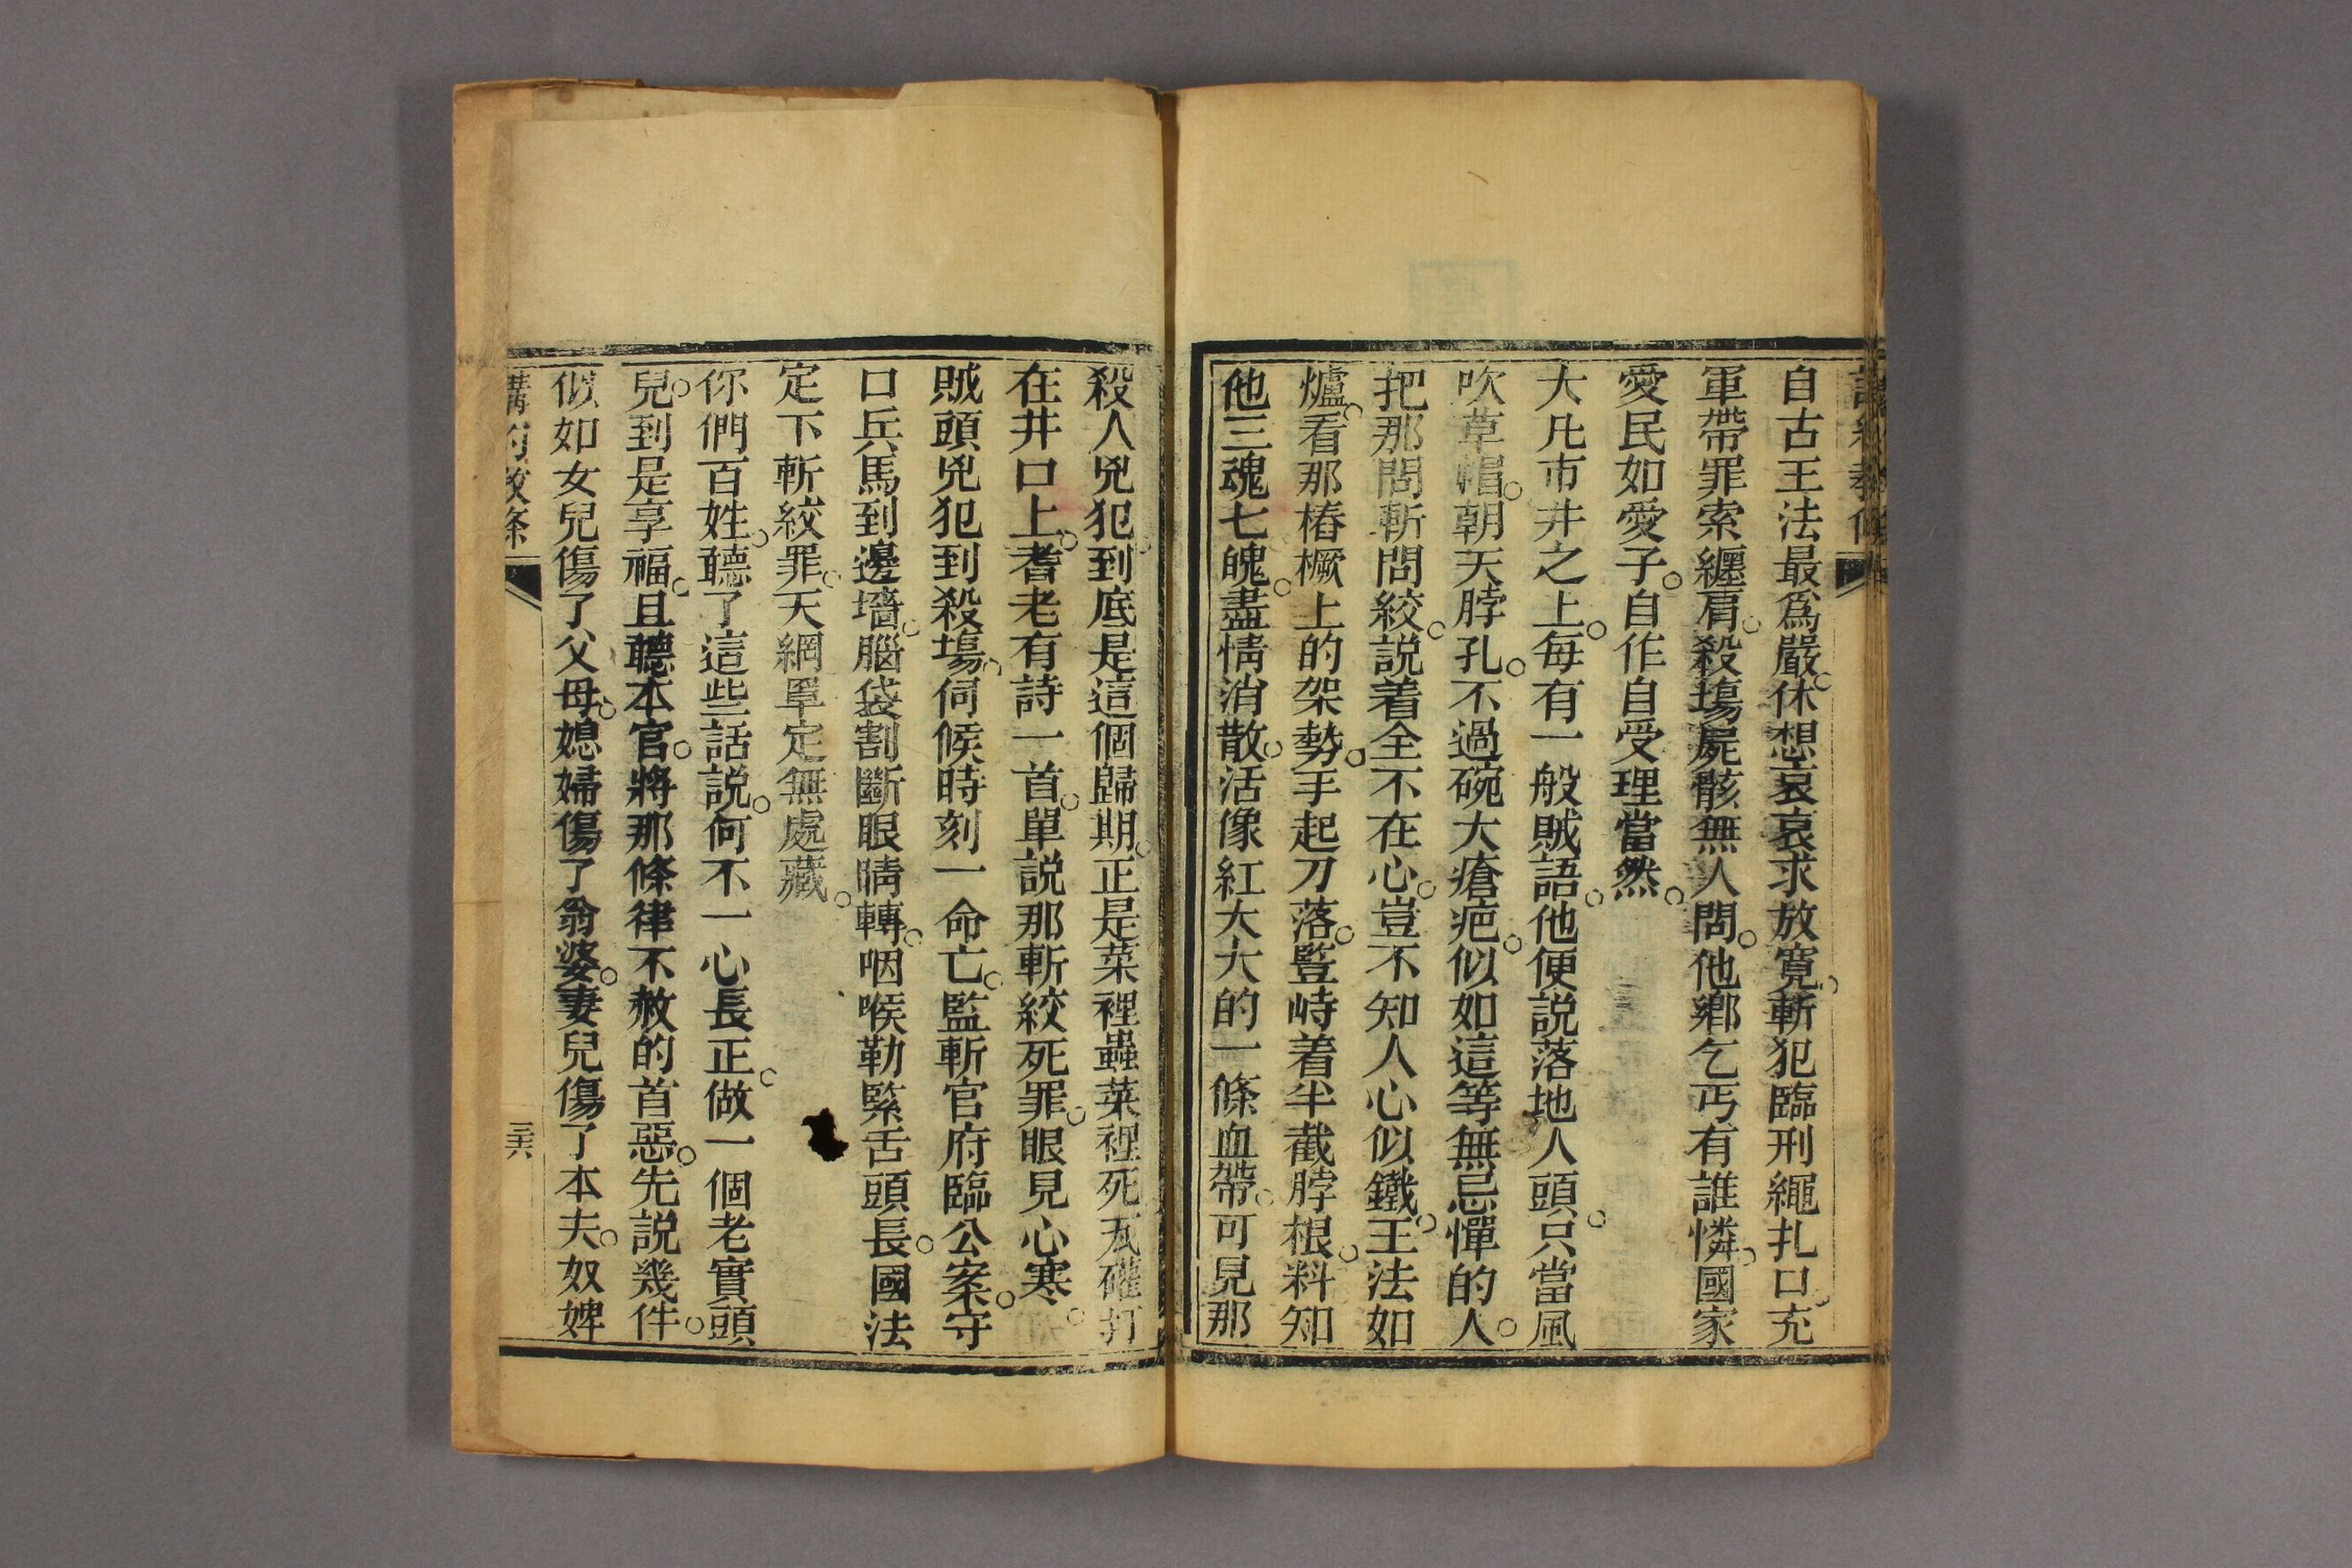 自古王法最爲嚴。休想哀哀求放寬。斬犯臨刑繩扎口。充
軍帶罪索纏肩。殺塲屍骸無人問。他鄉乞丐有誰憐。國家
愛民如愛子。自作自受理當然。
大凡市井之上。每有一般賊語。他便説落地人頭。只當風
吹草帽。朝天脖孔。不過碗大瘡疤。似如這等無忌憚的人。
把那問斬問絞。説着全不在心。豈不知人心似鐵。王法如
爐。看那樁橛上的架勢。手起刀落。豎峙着半截脖根。料知
他三魂七魄。盡情消散。活像紅大大的一條血帶。可見那
殺人兇犯。到底是這個歸期。正是菜裡蟲菜裡死。瓦礶打
在井口上。耆老有詩一首。單説那斬絞死罪。眼見心寒。
賊頭兇犯到殺塲。伺候時刻一命亡。監斬官府臨公案。守
口兵馬到邊墻。腦袋割斷眼睛轉。咽喉勒緊舌頭長。國法
定下斬絞罪。天網罩定無處藏。
你們百姓。聽了這些話説。何不一心長正。做一個老實頭
兒。到是享福。且聽本官。將那條律不赦的首惡。先説幾件。
似如女兒傷了父母。媳婦傷了翁婆。妻兒傷了本夫。奴婢
講約教條
三六